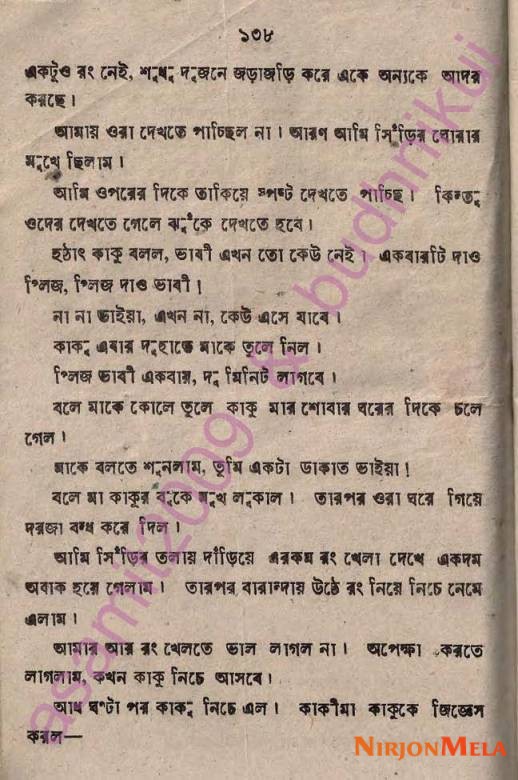 ১৩৮
একটুও রং নেই, শুধু দুজনে জড়াজড়ি করে একে অন্যকে আদর
করছে।
আমায় ওরা দেখতে পাচ্ছিল না। আরণ আমি সিঁড়ির ঘোরার
মুখে ছিলাম।
আমি ওপরের দিকে তাকিয়ে স্পষ্ট দেখতে পাচ্ছি। কিন্তু
ওদের দেখতে গেলে ঝুঁকে দেখতে হবে।
হঠাৎ কাকু বলল, ভাবী এখন তো কেউ নেই। একবারটি দাও
প্লিজ, প্লিজ দাও ভাবী!
না না ভাইয়া, এখন না, কেউ এসে যাবে।
কাকু এবার দুহাতে মাকে তুলে নিল।
প্লিজ ভাবী একবার, দু মিনিট লাগবে।
বলে মাকে কোলে তুলে কাকু মার শোবার ঘরের দিকে চলে
গেল।
মাকে বলতে শুনলাম, তুমি একটা ডাকাত ভাইয়া!
বলে মা কাকুর বুকে মুখ লুকাল। তারপর ওরা ঘরে গিয়ে
দরজা বন্ধ করে দিল।
আমি সিঁড়ির তলায় দাঁড়িয়ে এরকম রং খেলা দেখে একদম
অবাক হয়ে গেলাম। তারপর বারান্দায় উঠে রং নিয়ে নিচে নেমে
এলাম।
আমার আর রং খেলতে ভাল লাগল না। অপেক্ষা করতে
লাগলাম, কখন কাকু নিচে আসবে।
আধ ঘণ্টা পর কাকু নিচে এল। কাকীমা কাকুকে জিজ্ঞেস
করল—
asamit2009 & budhnikui
NIRJONMELA